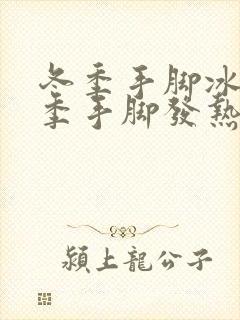 冬季手脚冰
季手脚發熱
潁上龍公子